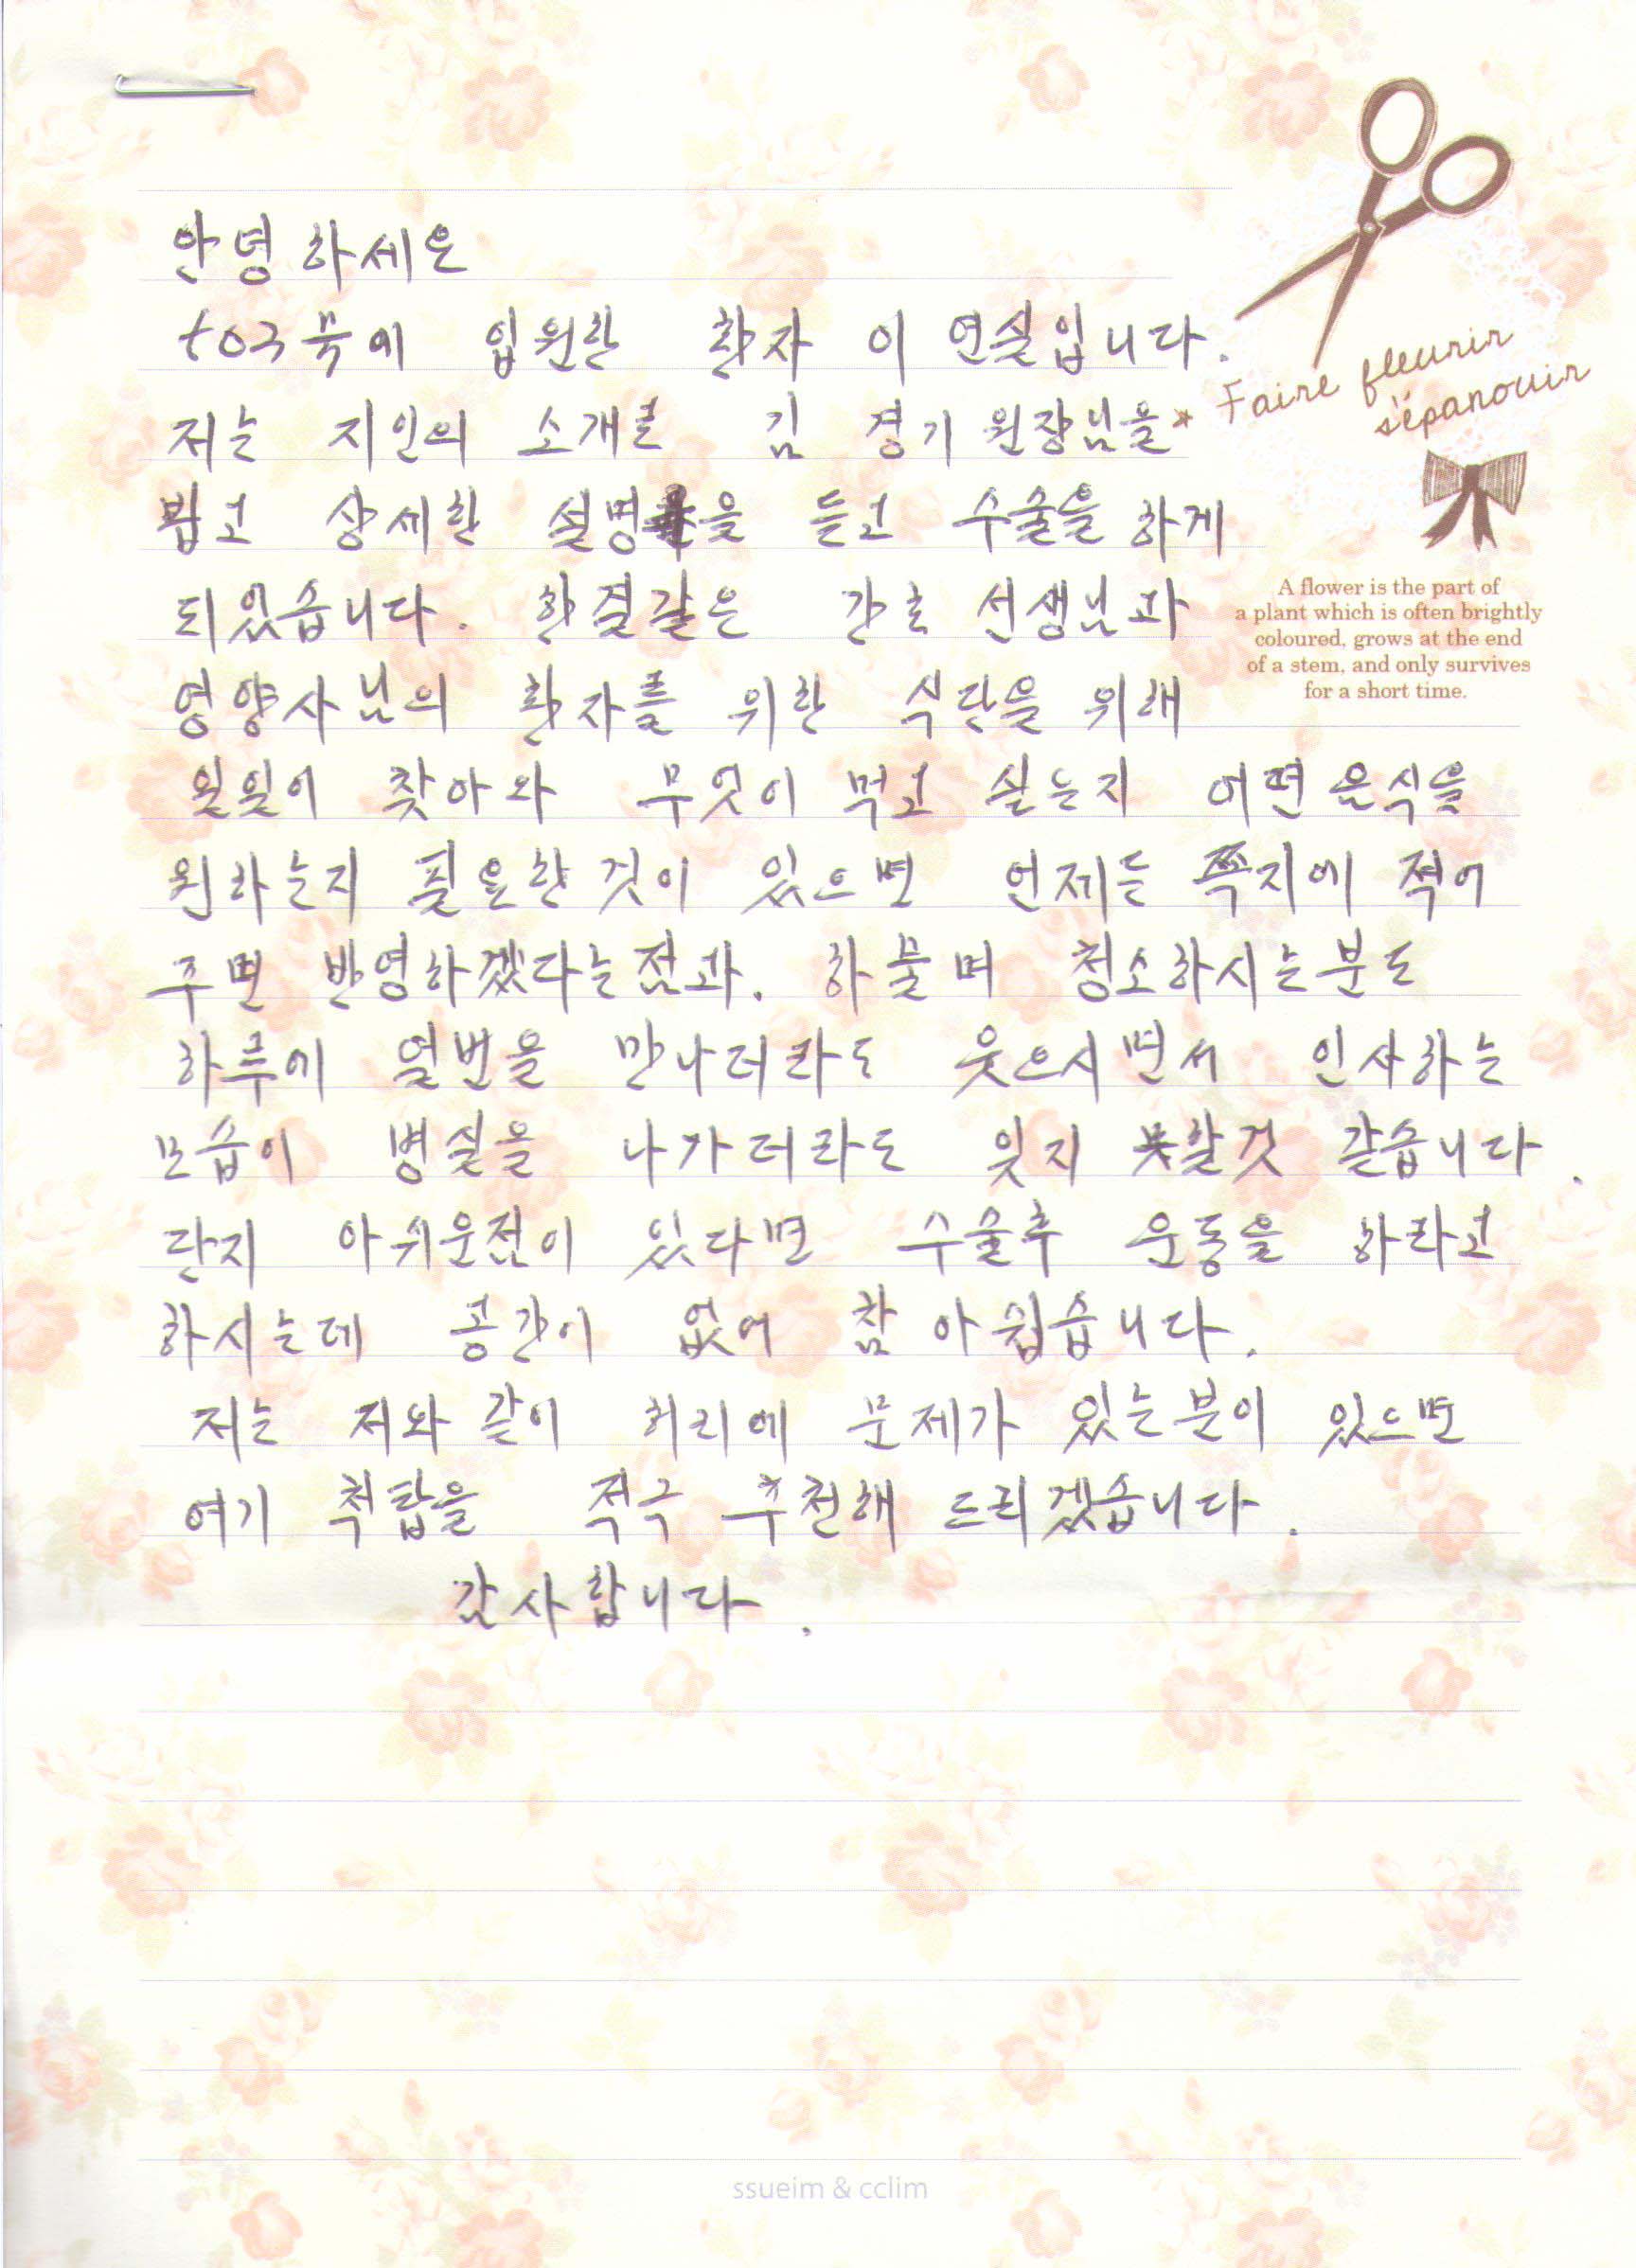 안녕하세요
703호에 입원한 환자 이연실입니다.
저는 지인의 소개로 김 경기 원장님을
뵙고 상세한 설명을 듣고 수술을 하게
되있습니다. 한결같은 간호 선생님과
영양사님의 환자를 위한 식단을 위해
일일이 찾아와 무엇이 먹고 싶는지 어떤 음식을
원하는지 필요한 것이 있으면 언제든 쪽지에 적어
주면 반영하겠다는점과. 하물며 청소하시는분도
하루에 열번을 만나더라도 웃으시면서 인사하는
모습이 병실을 나가더라도 잊지 못할것 같습니다.
단지 아쉬운점이 있다면 수술후 운동을 하라고
하시는데 공간이 없어 참 아쉽습니다.
저는 저와 같이 허리에 문제가 있는분이 있으면
여기 척탑을 적극 추천해 드리겠습니다.
감사합니다.
Faire fleurir
s'épanouir
A flower is the part of
a plant which is often brightly
coloured, grows at the end
of a stem, and only survives
for a short time.
ssueim & cclim